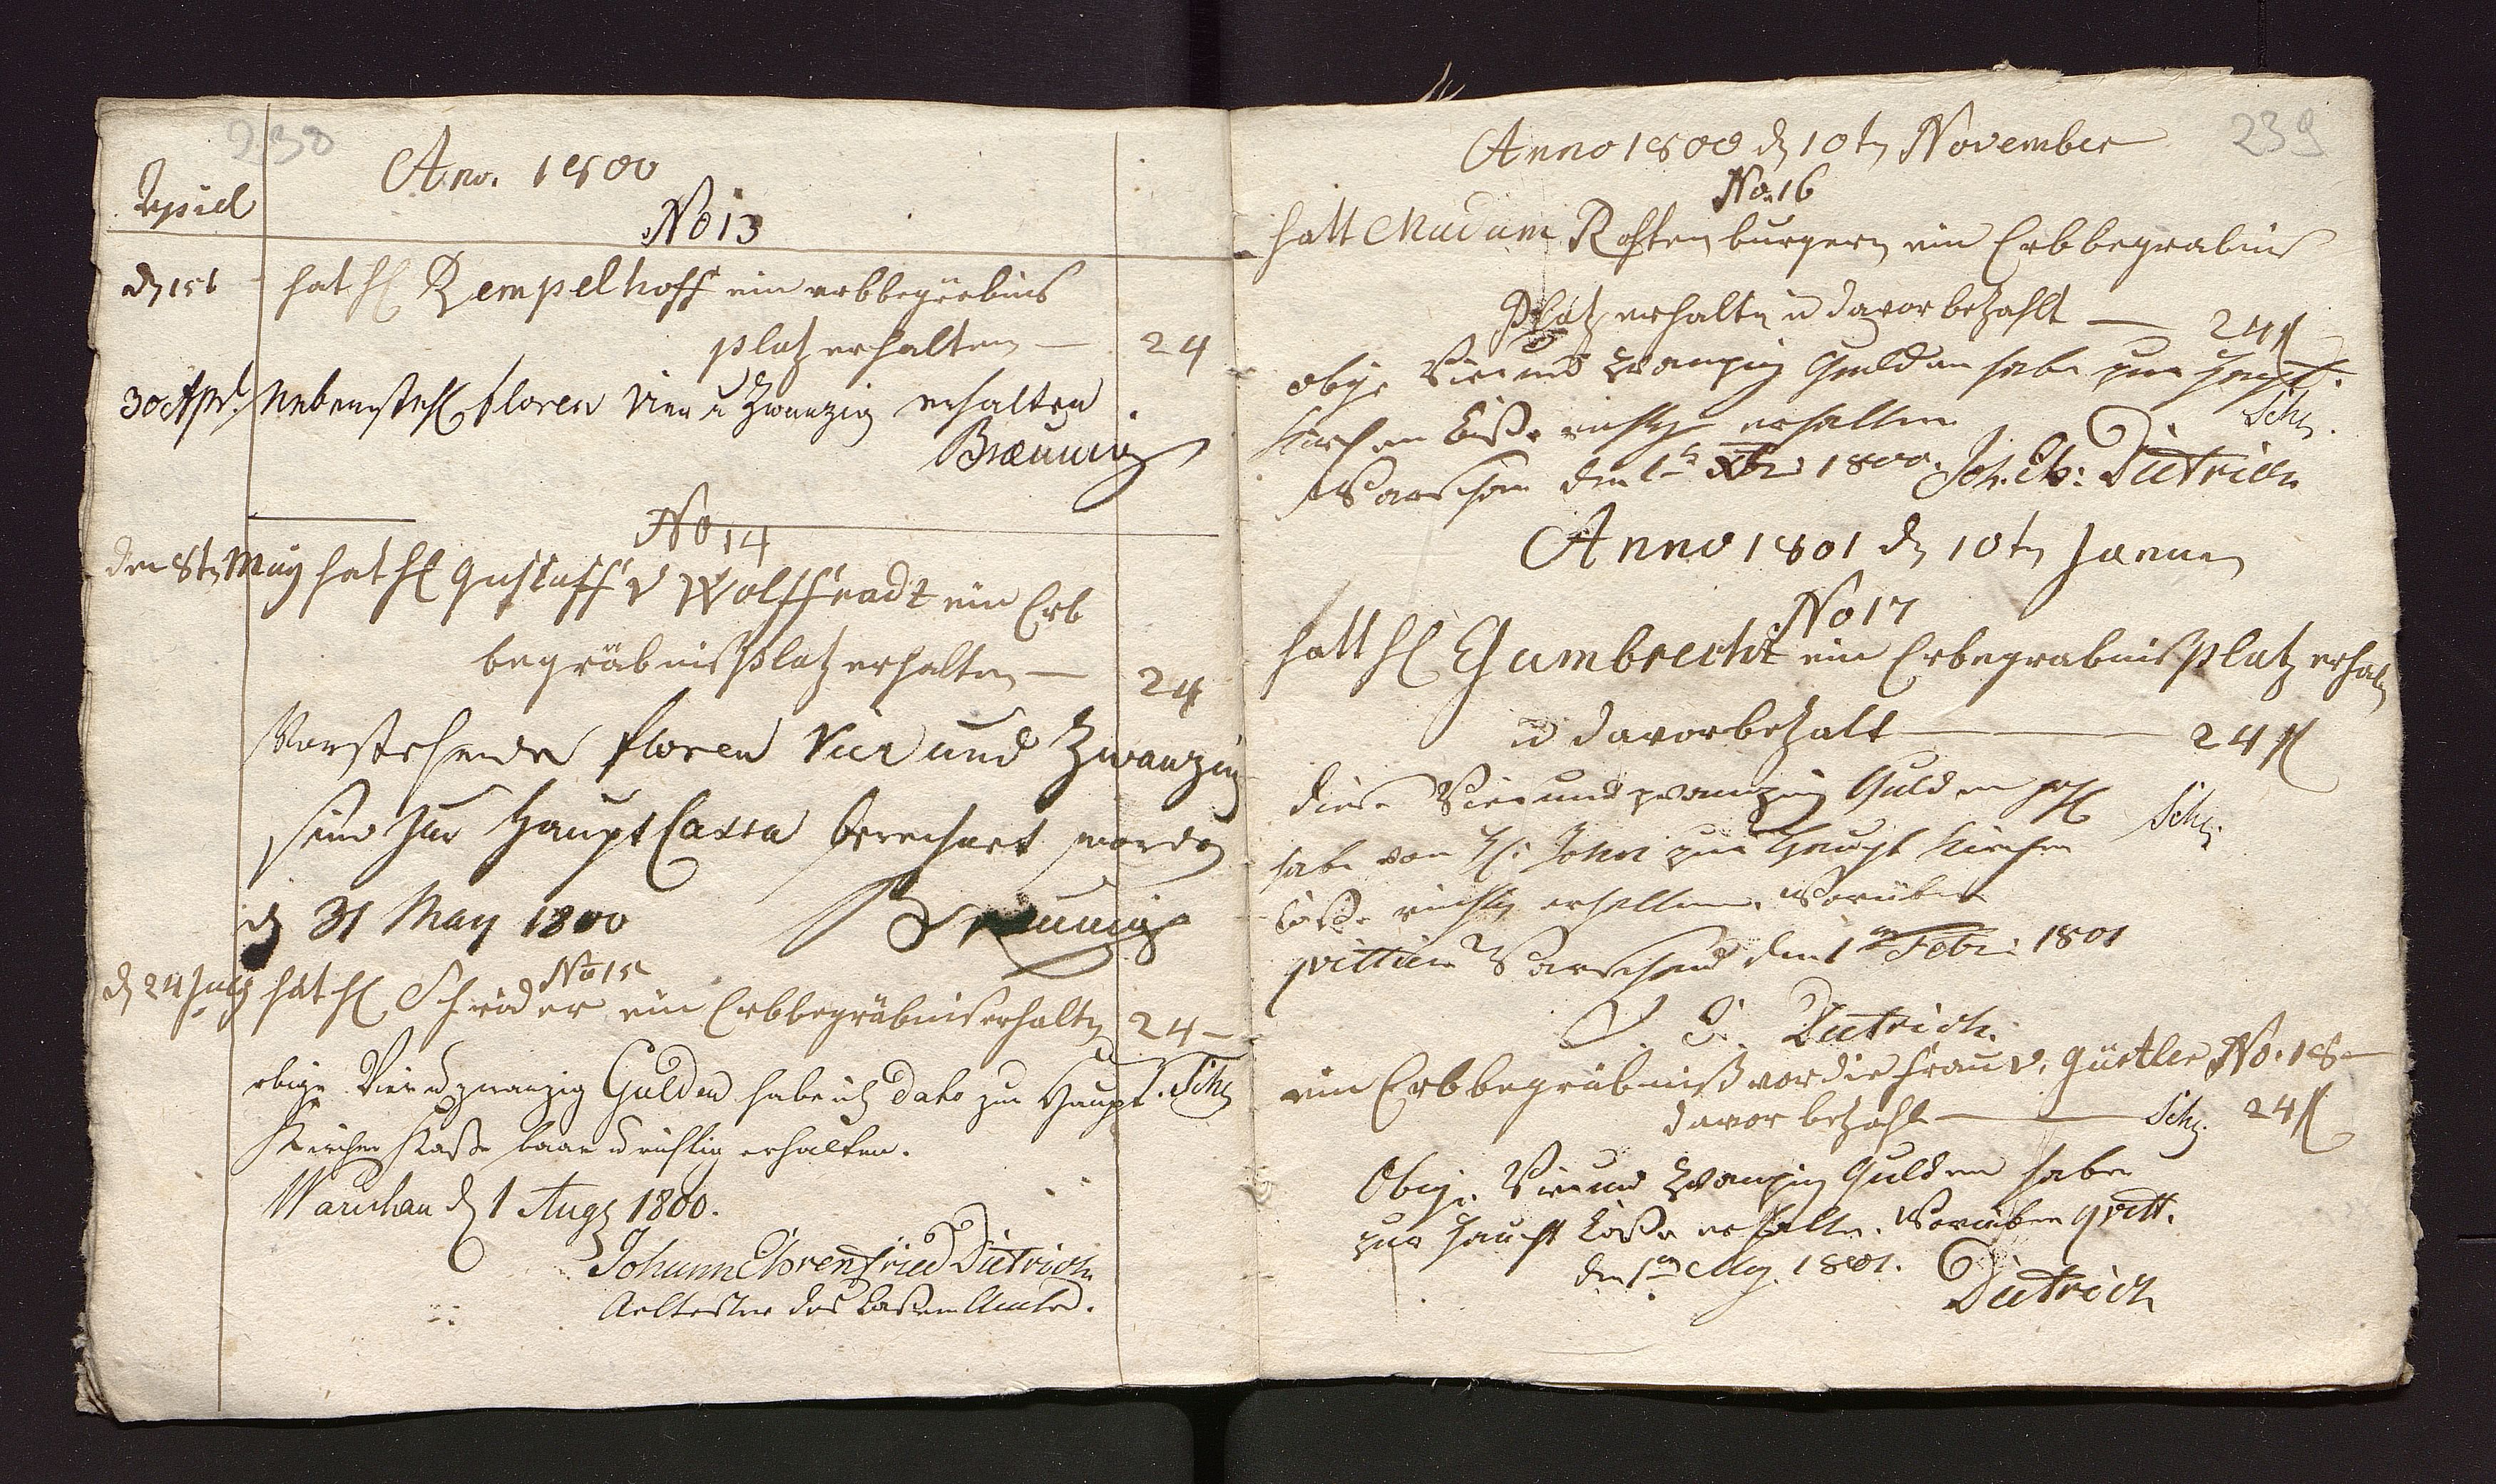 238
Ano. 1800
Apriel
No 13
d 15t hat H Rempelhoff ein erbbegrebnis
platz erhalten — 24
30 Apr. Nebensteh floren Vier u Zwanzig erhalten
Braeunig
No 14
den 8tn May hat H Gustaff v Wolffradt ein Erb
begräbnißplatz erhalten — 24
Vorstehende floren Vier und Zwanzig
sind zur Haupt Cassa berechnet worden
d 31 May 1800 Braeunig
No 15
d 24 July hat H Schröder ein Erbbegräbnis erhalten 24 —
obige Vier u zwanzig Gulden habe ich dato zur Haupt Schz
Kirchen Kasse baar u richtig erhalten.
Warschau d 1 Augs 1800.
Johann Ehrenfried Dietrich
Aeltester des Cassen Amtes.
239
Anno 1800 d 10tn November
No. 16
hatt Madam Rostenburgern ein Erbbegrabnis
Platz erhalten u davor bezahlt — 24 f
obige Vier und Zwanzig Gulden habe zur Haupt.
Kirchen Casse richtig erhalten Schz.
Warschau den 1t Xbr 1800. Joh. Eh: Dietrich
Anno 1801 d 10tn Januar
No 17
hatt H Gambrecht ein Erbegrabnißplatz erhalt
u davor bezalt — 24 f
diese Vier und zwanzig Gulden
habe von H: John zur Haupt Kirchen Schz.
Casse richtig erhalten. Worüber
quittire Warschau den 1tn Febr: 1801
J. E. Dietrich.
ein Erbbegräbniß vor die Frau v. Gürtler No. 18
davor bezahlt — Schz. 24 f
Obige Vier und Zwanzig Gulden habe
zur Haupt Casse erhalten. Worüber quitt.
den 1tn May. 1801.
Dietrich